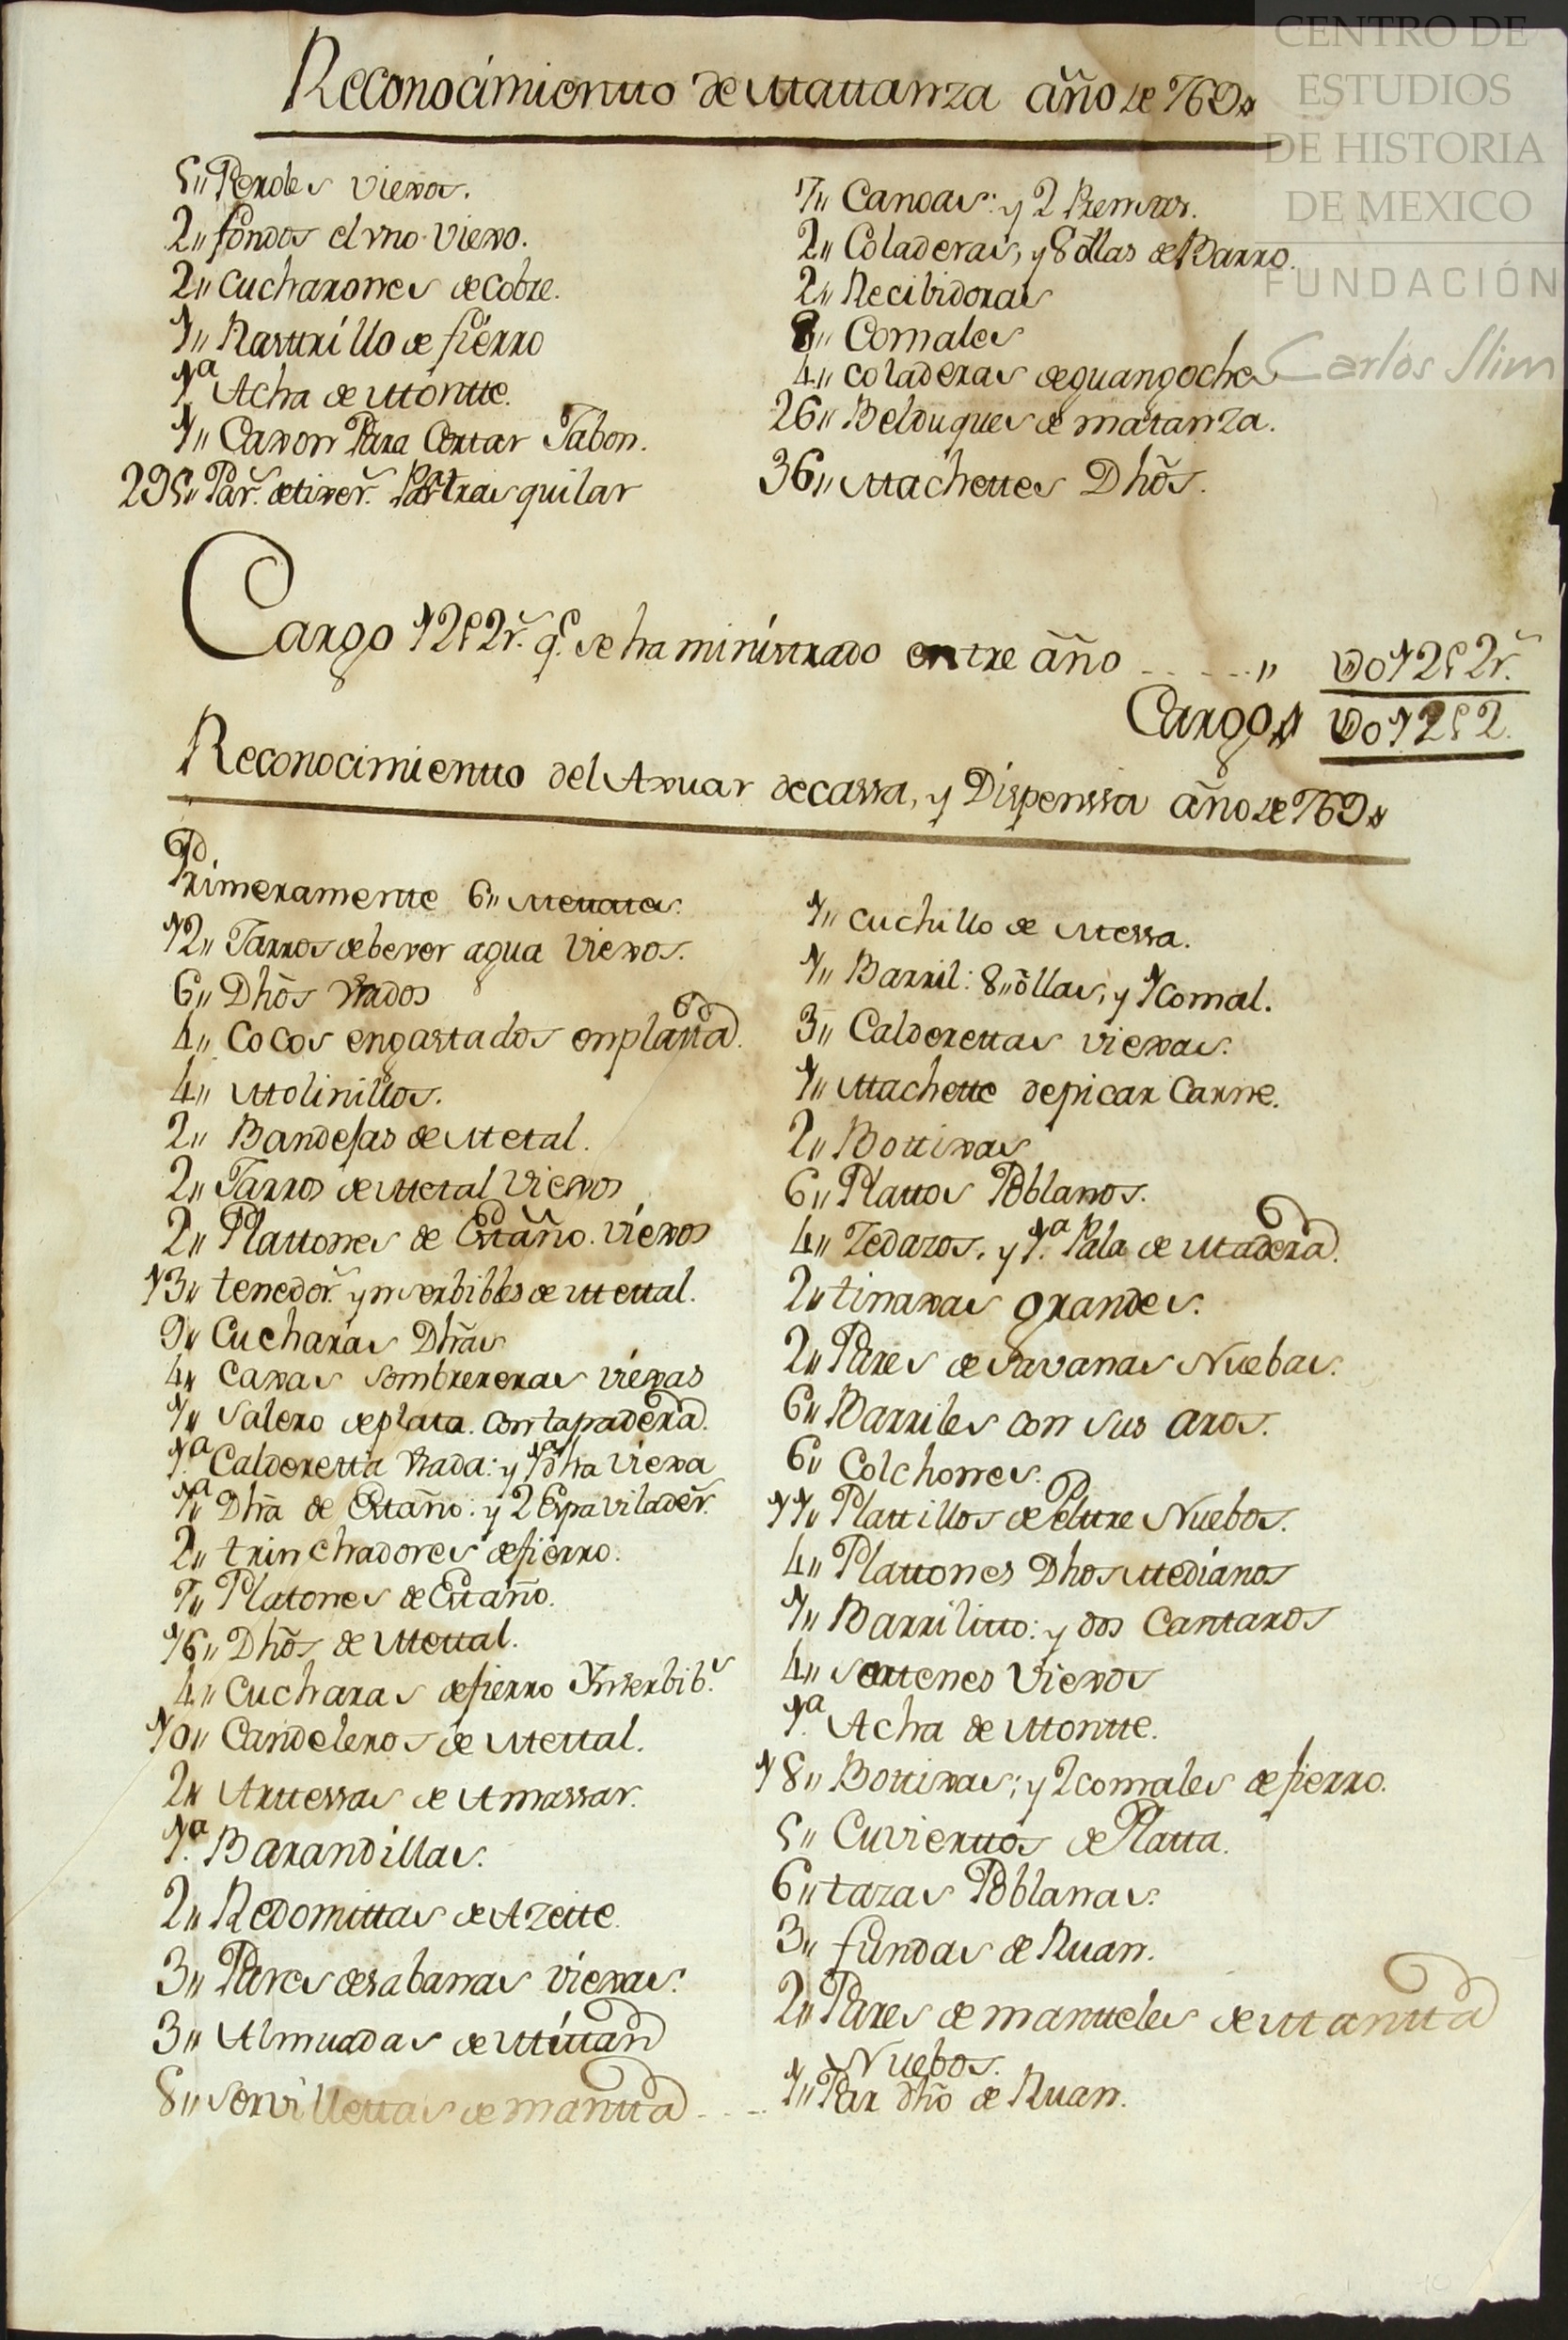 Reconocimientto de Mattanza año de 769
5,, Peroles viexos.
2,, fondos el vno viexo.
2,, Cucharones de Cobre.
1,, Rastrillo de fierro
1.ª Acha de Montte.
1,, Caxon Para Cortar Jabon.
295,, Par.s de tixer.s Para trasquilar
7,, Canoas: y 2 Remos.
2,, Coladeras, y 8 ollas de Barro.
2,, Recibidoras
8,, Comales
4,, coladeras de guangoche
26,, Belduques de matanza.
36,, Machettes Dhõs.
Cargo 12p2r.s q.e se ha ministrado en tre año ,, U012p2r.s
Cargo U012p2.
Reconocimientto del Axuar de cassa, y Dispenssa año de 769
Primeramente 6,, Mettates.
12,, Jarros de bever agua Viexos.
6,, Dhõs Vsados
4,, Cocos engastados en platta.
4,, Molinillos.
2,, Bandejas de Metal.
2,, Jarros de Metal Viexos
2,, Plattones de Estaño. viexos
13,, tenedor.s ynserbibles de Mettal.
9,, Cucharas Dhãs
4,, Caxas Sombrereras viexas
1,, Salero de plata. con tapadera.
1.ª Calderetta Vsada: y 1.ª dha viexa
1.ª Dhã de Estaño: y 2 Espavilader.s
2,, trinchadores de fierro.
7,, Platones de Estaño.
16,, Dhõs de Mettal.
4,, Cucharas de fierro Ynserbib.s
10,, Candeleros de Mettal.
2,, Arttessas de Amassar.
1.ª Barandillas.
2,, Redomittas de Azeitte.
3,, Pares de sabanas viexas.
3,, Almuadas de Mittan
8,, Servillettas de mantta
1,, cuchillo de Messa.
1,, Barril: 8,, õllas, y 1 comal.
3,, Calderettas viexas.
1,, Machette de picar Carne.
2,, Bottixas
6,, Plattos Poblanos.
4,, Zedazos, y 1.ª Pala de Madera.
2,, tinaxas grandes.
2,, Pares de Savanas Nuebas.
6,, Barriles con sus aros.
6,, Colchones.
11,, Plattillos de Peltre Nuebos.
4,, Plattones Dhos Medianos
1,, Barrilitto: y dos Cantaros
4,, Sartenes Viexos
1.ª Acha de Montte.
18,, Bottixas; y 2 comales de fierro.
5,, Cuvierttos de Platta.
6,, tazas Poblanas.
3,, fundas de Ruan.
2,, Pares de manteles de Mantta
Nuebos.
1,, Par dhõ de Ruan.
CENTRO DE
ESTUDIOS
DE HISTORIA
DE MEXICO
FUNDACIÓN
Carlos Slim